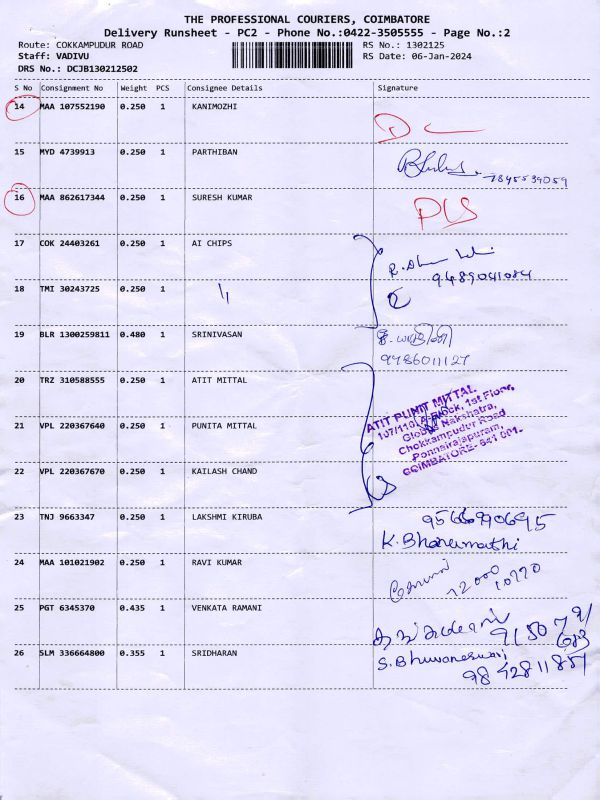 THE PROFESSIONAL COURIERS, COIMBATORE
Delivery Runsheet - PC2 - Phone No.:0422-3505555 - Page No.:2
Route: COKKAMPUDUR ROAD RS No.: 1302125
Staff: VADIVU RS Date: 06-Jan-2024
DRS No.: DCJB130212502
S No Consignment No Weight PCS Consignee Details Signature
14 MAA 107552190 0.250 1 KANIMOZHI
15 MYD 4739913 0.250 1 PARTHIBAN
7845539059
16 MAA 862617344 0.250 1 SURESH KUMAR
17 COK 24403261 0.250 1 AI CHIPS
9489041084
18 TMI 30243725 0.250 1
19 BLR 1300259811 0.480 1 SRINIVASAN
9486011127
20 TRZ 310588555 0.250 1 ATIT MITTAL
ATIT PUNIT MITTAL
107/110, A-Block, 1st Floor,
Global Nakshatra,
Chokkampudur Road
Ponnairajapuram,
COIMBATORE- 641 001.
21 VPL 220367640 0.250 1 PUNITA MITTAL
22 VPL 220367670 0.250 1 KAILASH CHAND
23 TNJ 9663347 0.250 1 LAKSHMI KIRUBA
9566990695
K. Bhanumathi
24 MAA 101021902 0.250 1 RAVI KUMAR
72000 10770
25 PGT 6345370 0.435 1 VENKATA RAMANI
26 SLM 336664800 0.355 1 SRIDHARAN
S. Bhuvaneswari
9842811851